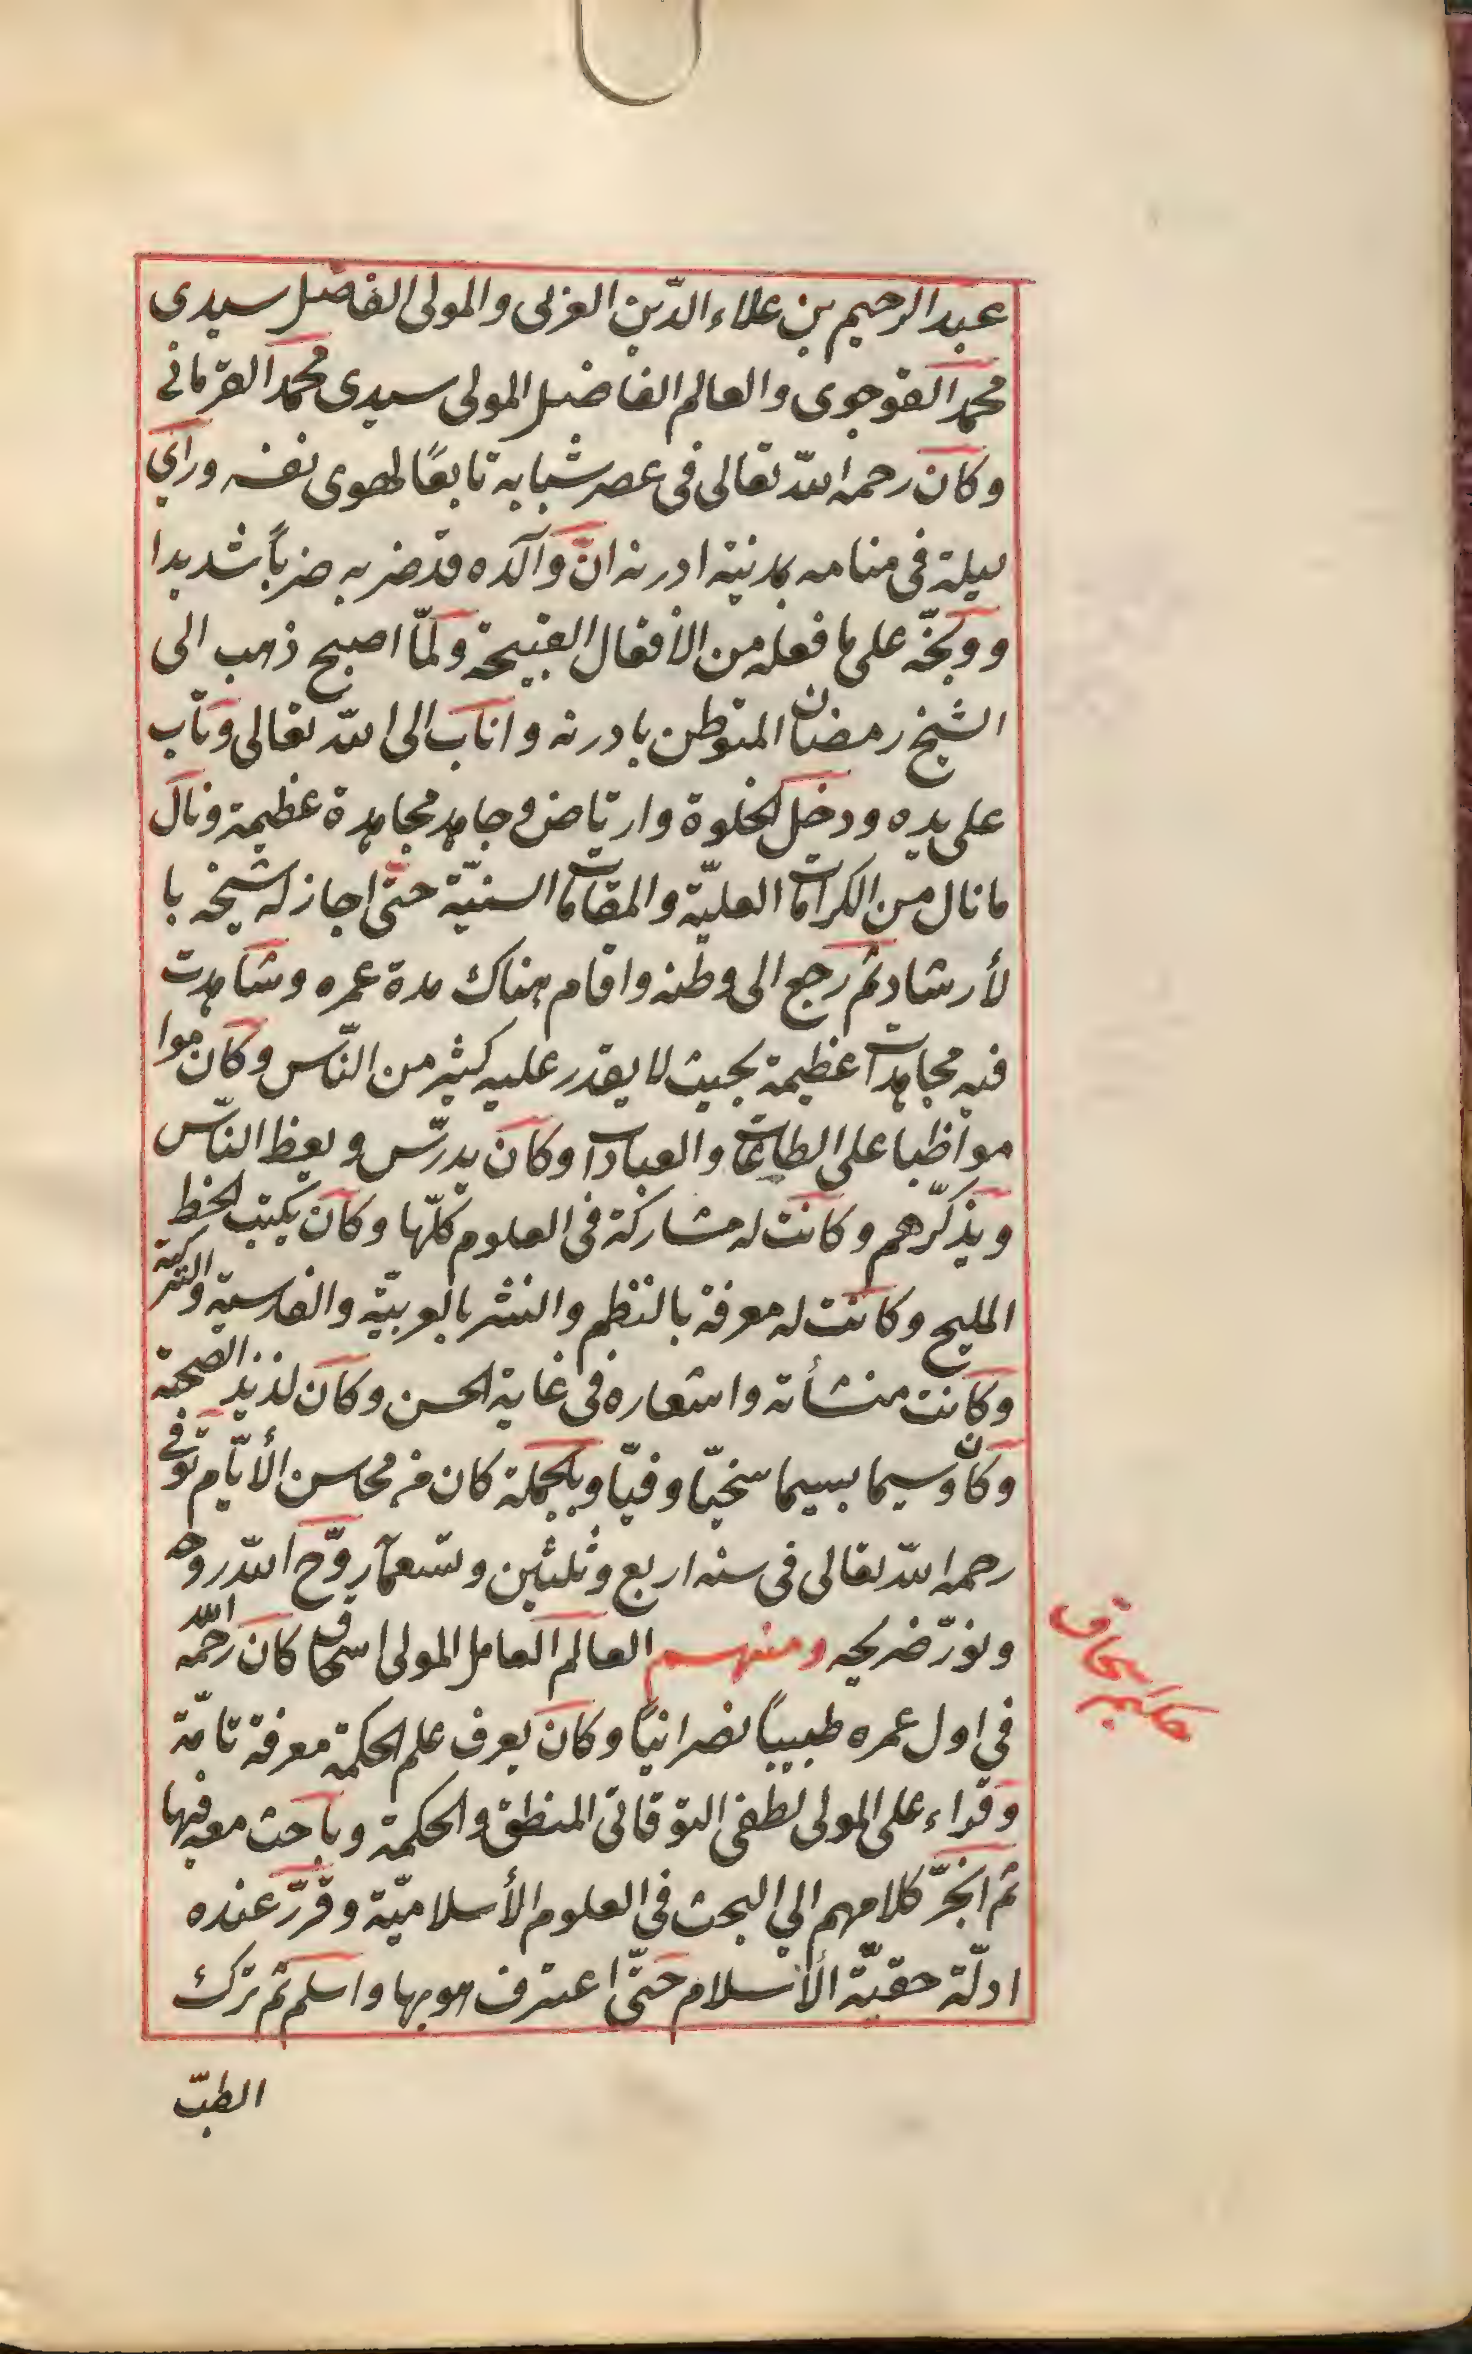 عبد الرحيم بن علاء الدّين العربى والمولى الفاضل سيدى
محمد القوجوى والعالم الفاضل المولى سيدى محمد القرمانى
وكان رحمه اللّه تعالى فى عصر شبابه تابعًا لهوى نفسه وراى
ليلة فى منامه بمدينة ادرنه انّ والده قد ضربه ضرباً شديدا
ووبّخه على ما فعله من الأفعال القبيحة ولمّا اصبح ذهب الى
الشيخ رمضان المتوطن بادرنه واناب الى اللّه تعالى وتاب
على يده ودخل الخلوة وارتاض وجاهد مجاهدة عظيمة ونال
ما نال من الكرامات العليّة والمقامات السنيّة حتى اجاز له شيخه با
لأرشاد ثم رجع الى وطنه واقام هناك مدة عمره وشاهدت
فيه مجاهدات عظيمة بحيث لا يقدر عليه كثير من النّاس وكان موا
مواظبا على الطاعات والعبادات وكان يدرّس ويعظ النّاس
ويذكّرهم وكانت له مشاركة فى العلوم كلّها وكان يكتب الخط
المليح وكانت له معرفة بالنظم والنثر بالعربيّة والفارسية والتركية
وكانت منشأته واشعاره فى غاية الحسن وكان لذيذ الصحبة
وكان وسيما بسيما سخيّا وفيّا وبالجملة كان من محاسن الأيّام توفى
رحمه اللّه تعالى فى سنه اربع وثلثين وتسعمآ روّح اللّه روحه
ونوّر ضريحه ومنهم العالم العامل المولى اسحاق كان رحمه اللّه
فى اول عمره طبيباً نصرانيّا وكان يعرف علم الحكمة معرفة تامّة
وقراء على المولى لطفى التوقاتى المنطق والحكمة وباحث معه فيها
ثم انجرّ كلامهم الي البحث فى العلوم الأسلاميّة وقرّر عنده
ادلّة حقيّة الأسلام حتّى اعترف هو بها واسلم ثم ترك
الطبّ
حكيم اسحاق